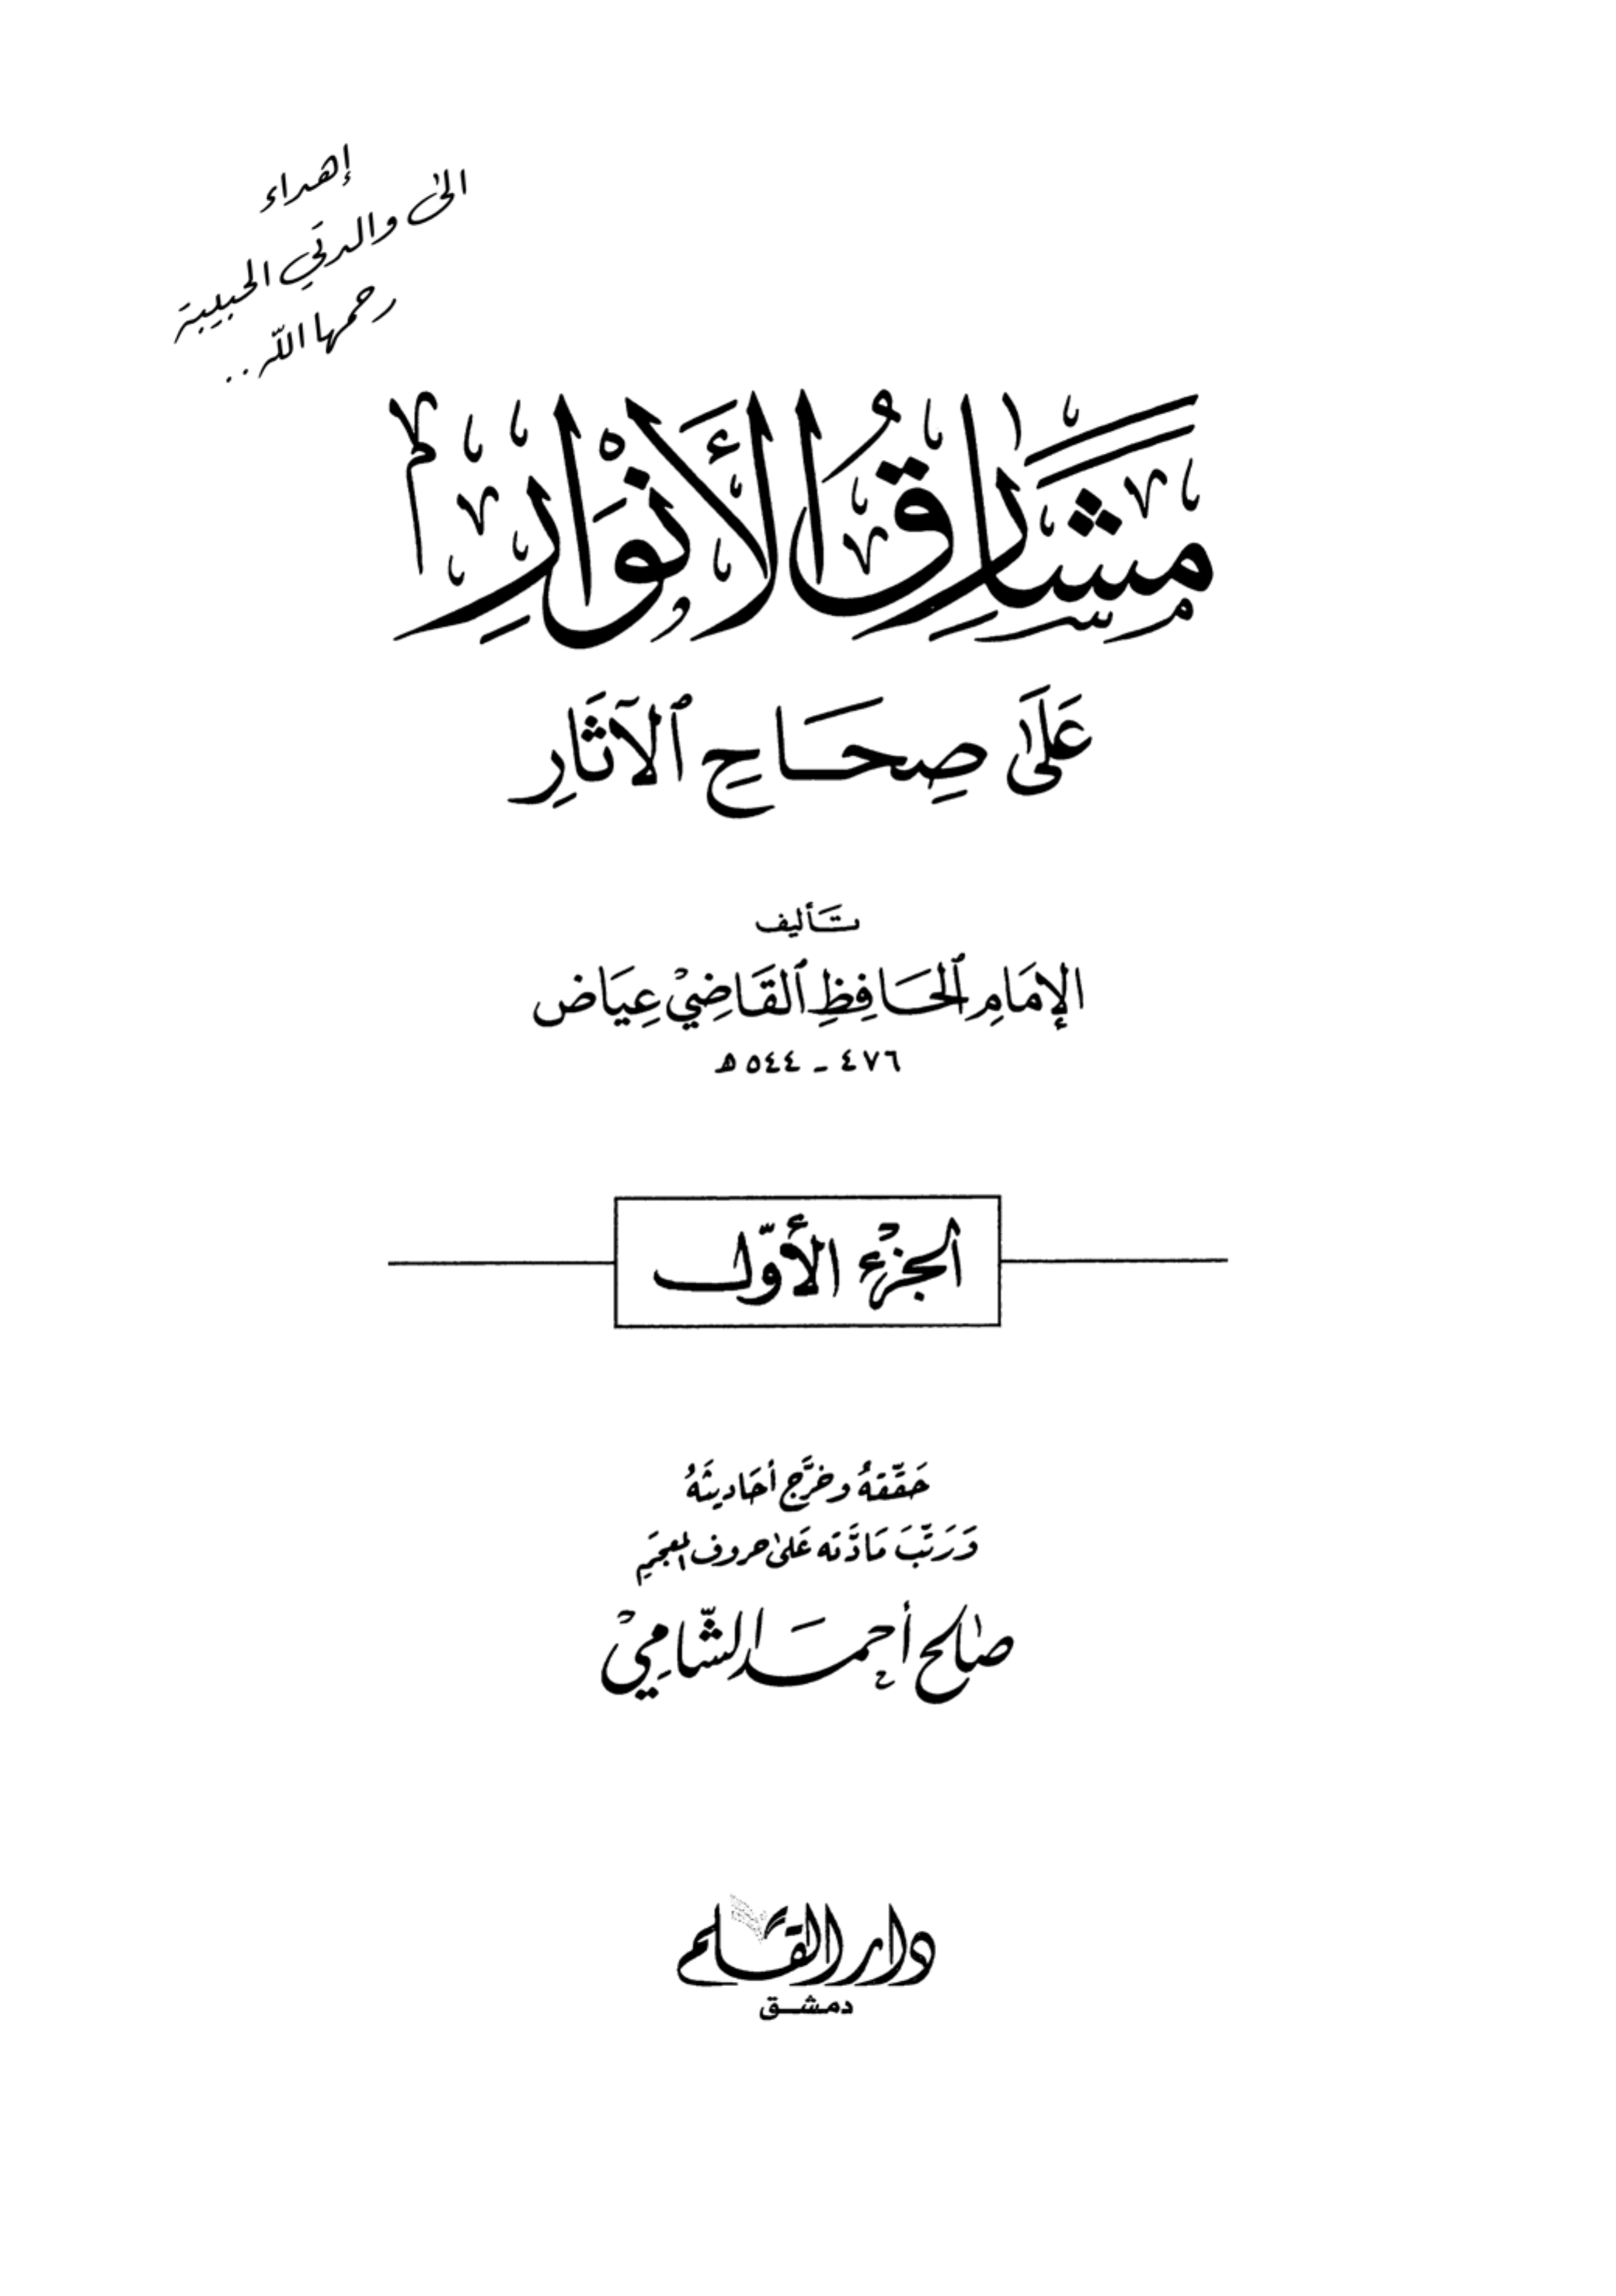 إهداء
الى والدتي الحبيبة
رحمها الله ..
مَشَارِقُ الأَنْوَارِ
عَلَى صِحَاحِ ٱلآثَارِ
تَأليف
الإمَامِ ٱلحَافِظِ ٱلقَاضِيْ عِيَاض
٤٧٦ - ٥٤٤ ه
الجزْء الأوّل
حَقَّقهُ وخرَّج أحَاديثَهُ
وَرَتَّبَ مَادَّته عَلىٰ حروف المعجَمِ
صَالح أحمَد الشَّامِيْ
دار القلم
دمشق